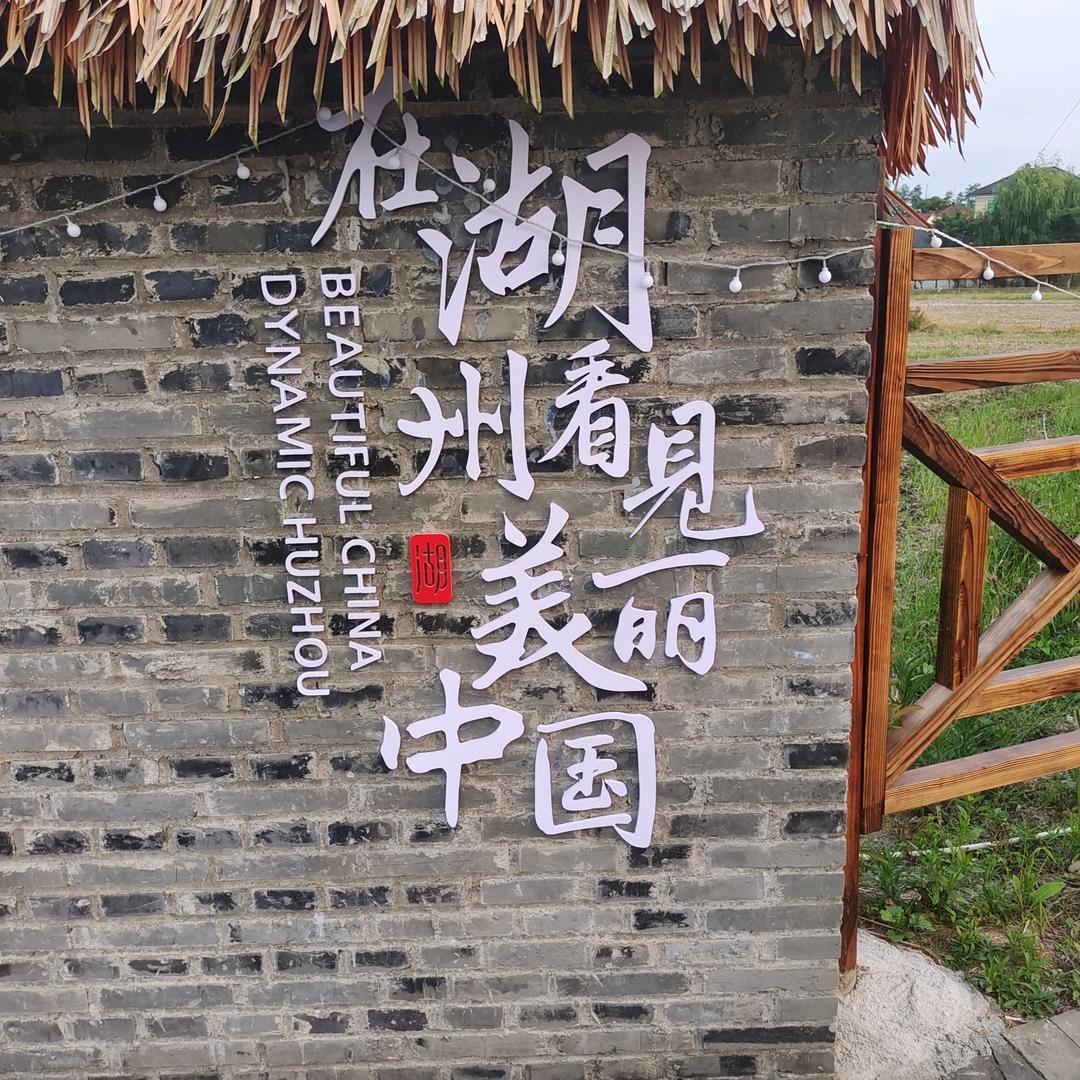 在湖州
看见
美丽
中国
湖
BEAUTIFUL CHINA
DYNAMIC HUZHOU